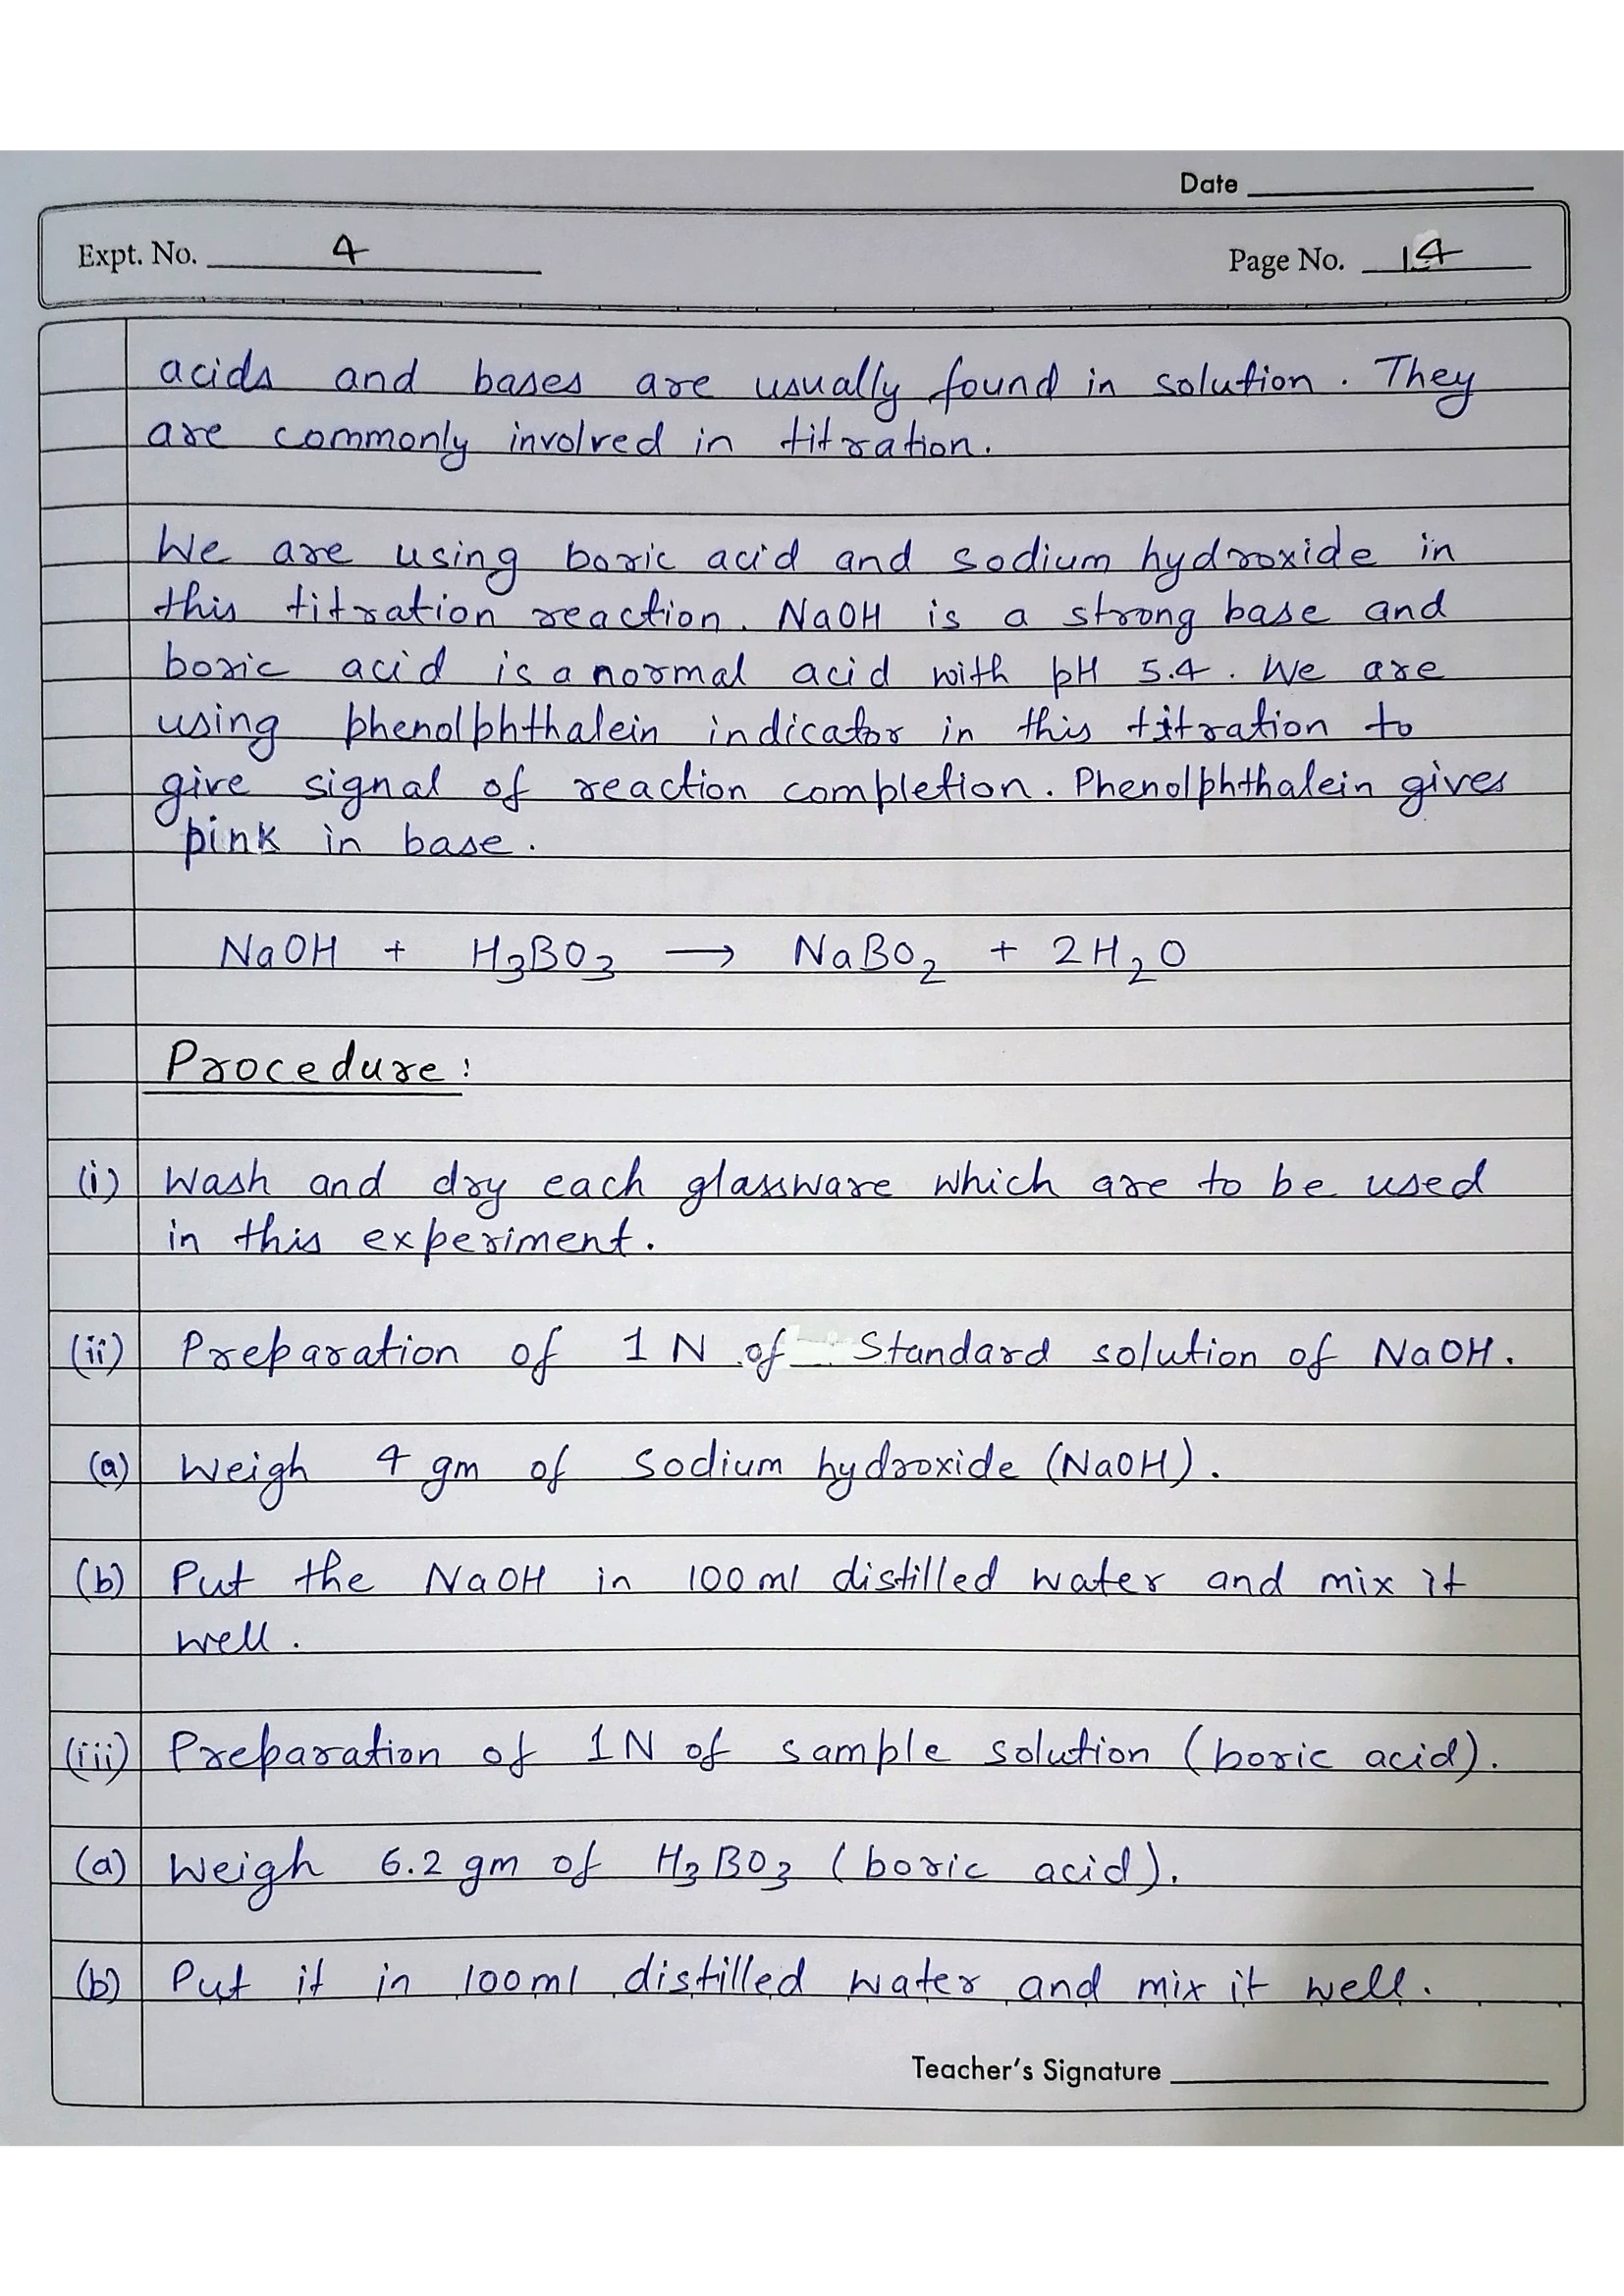 Date
Expt. No. 4
Page No. 14
acids and bases are usually found in solution. They
are commonly involved in titration.
We are using boric acid and sodium hydroxide in
this titration reaction. NaOH is a strong base and
boric acid is a normal acid with pH 5.4. We are
using phenolphthalein indicator in this titration to
give signal of reaction completion. Phenolphthalein gives
pink in base.
NaOH + H₃BO₃ → NaBO₂ + 2H₂O
Procedure:
(i) Wash and dry each glassware which are to be used
in this experiment.
(ii) Preparation of 1 N of Standard solution of NaOH.
(a) Weigh 4 gm of Sodium hydroxide (NaOH).
(b) Put the NaOH in 100 ml distilled water and mix it
well.
(iii) Preparation of 1N of sample solution (boric acid).
(a) Weigh 6.2 gm of H₃BO₃ (boric acid).
(b) Put it in 100ml distilled water and mix it well.
Teacher's Signature